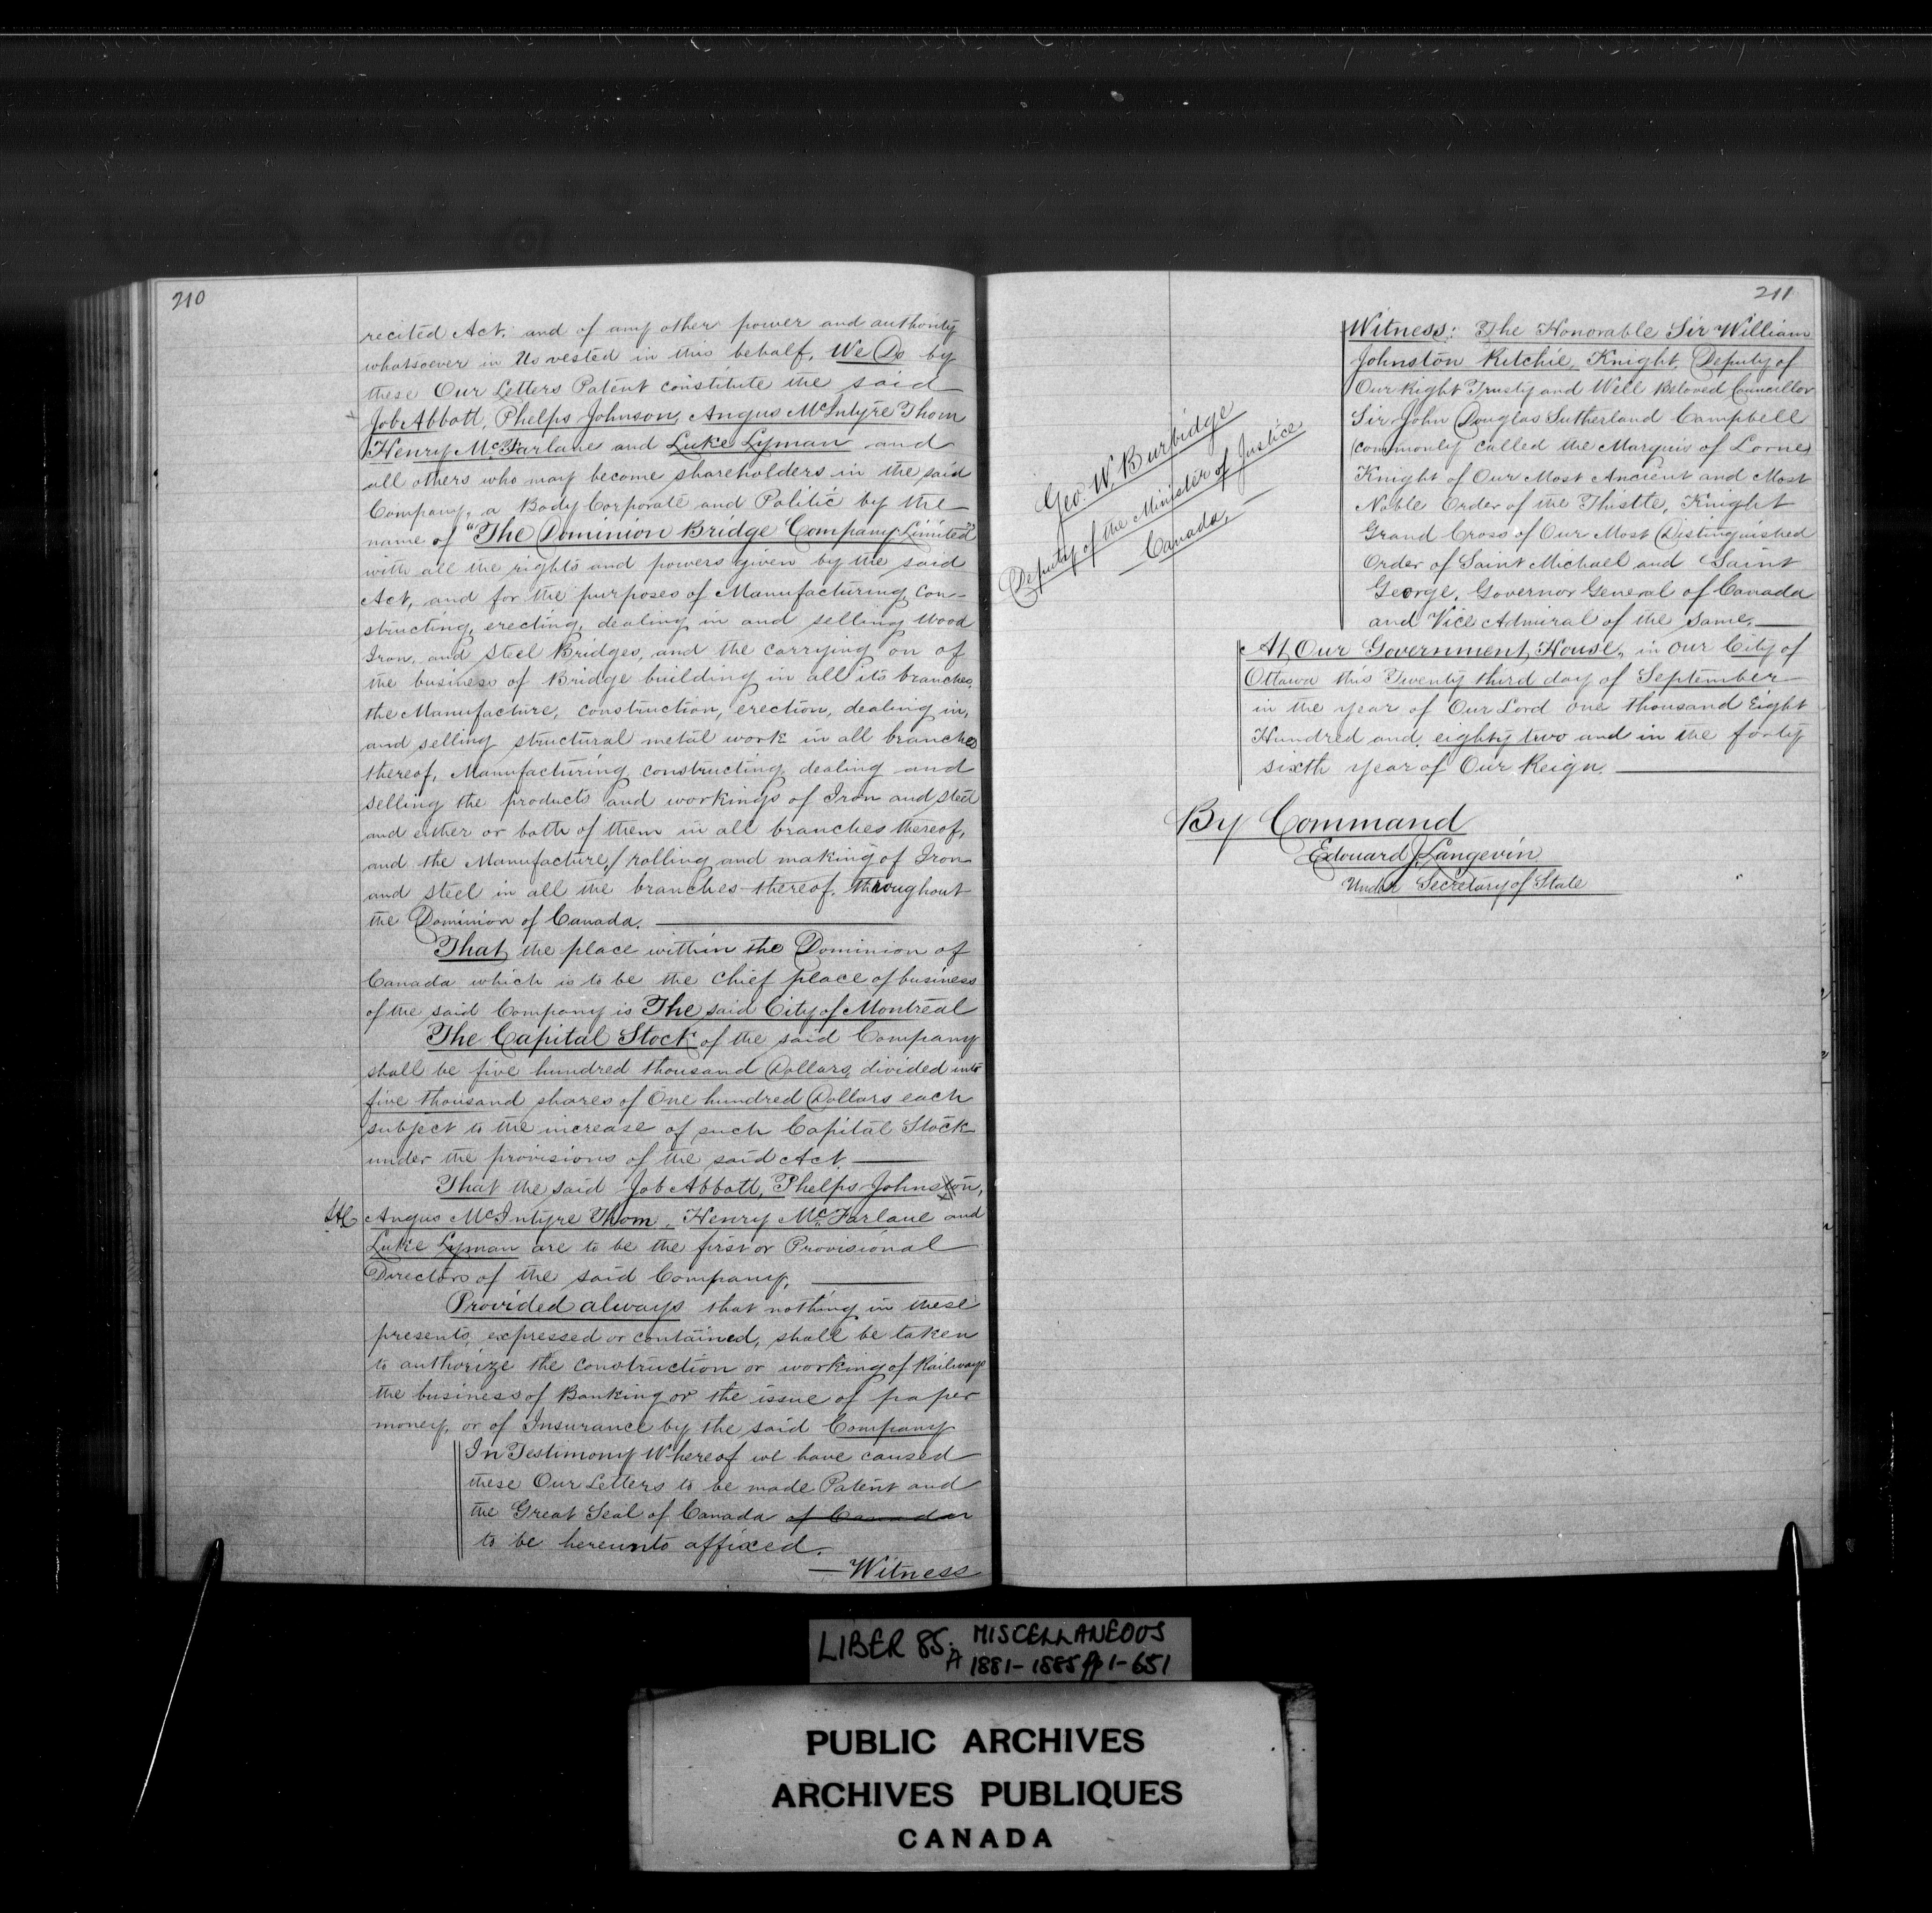 210
recited Act, and of any other power and authority
whatsoever in Us vested in this behalf, We Do by
these Our Letters Patent constitute the said
Job Abbott, Phelps Johnson, Angus McIntyre Thom
Henry McFarlane and Luke Lyman and
all others who may become shareholders in the said
Company, a Body Corporate and Politic by the
name of "The Dominion Bridge Company Limited"
with all the rights and powers given by the said
Act, and for the purposes of Manufacturing, Con-
structing, erecting, dealing in and selling Wood
Iron, and Steel Bridges, and the carrying on of
the business of Bridge building in all its branches,
the Manufacture, construction, erection, dealing in,
and selling structural metal work in all branches
thereof, Manufacturing, constructing, dealing and
selling the products and workings of Iron and Steel
and either or both of them in all branches thereof,
and the Manufacture, rolling and making of Iron
and Steel in all the branches thereof, throughout
the Dominion of Canada.
That the place within the Dominion of
Canada which is to be the Chief place of business
of the said Company is The said City of Montreal
The Capital Stock of the said Company
shall be five hundred thousand Dollars, divided into
five thousand shares of One hundred Dollars each
subject to the increase of such Capital Stock
under the provisions of the said Act.
That the said Job Abbott, Phelps Johnston,
Angus McIntyre Thom, Henry McFarlane and
Luke Lyman are to be the first or Provisional
Directors of the said Company.
Provided always that nothing in these
presents, expressed or contained, shall be taken
to authorize the construction or working of Railways
the business of Banking or the issue of paper
money, or of Insurance by the said Company
In Testimony Whereof we have caused
these Our Letters to be made Patent and
the Great Seal of Canada of Canada
to be hereunto affixed.
—Witness
211
Geo. W. Burbidge
Deputy of the Minister of Justice
Canada,
Witness: The Honorable Sir William
Johnston Ritchie, Knight, Deputy of
Our Right Trusty and Well Beloved Councillor
Sir John Douglas Sutherland Campbell
(commonly called the Marquis of Lorne)
Knight of Our Most Ancient and Most
Noble Order of the Thistle, Knight
Grand Cross of Our Most Distinguished
Order of Saint Michael and Saint
George, Governor General of Canada
and Vice Admiral of the same.
At Our Government House, in Our City of
Ottawa this Twenty third day of September
in the year of Our Lord one thousand Eight
Hundred and eighty two and in the forty
sixth year of Our Reign.
By Command
Edouard J. Langevin
Under Secretary of State
LIBER 85. MISCELLANEOUS
A 1881-1885 pp 1-651
PUBLIC ARCHIVES
ARCHIVES PUBLIQUES
CANADA